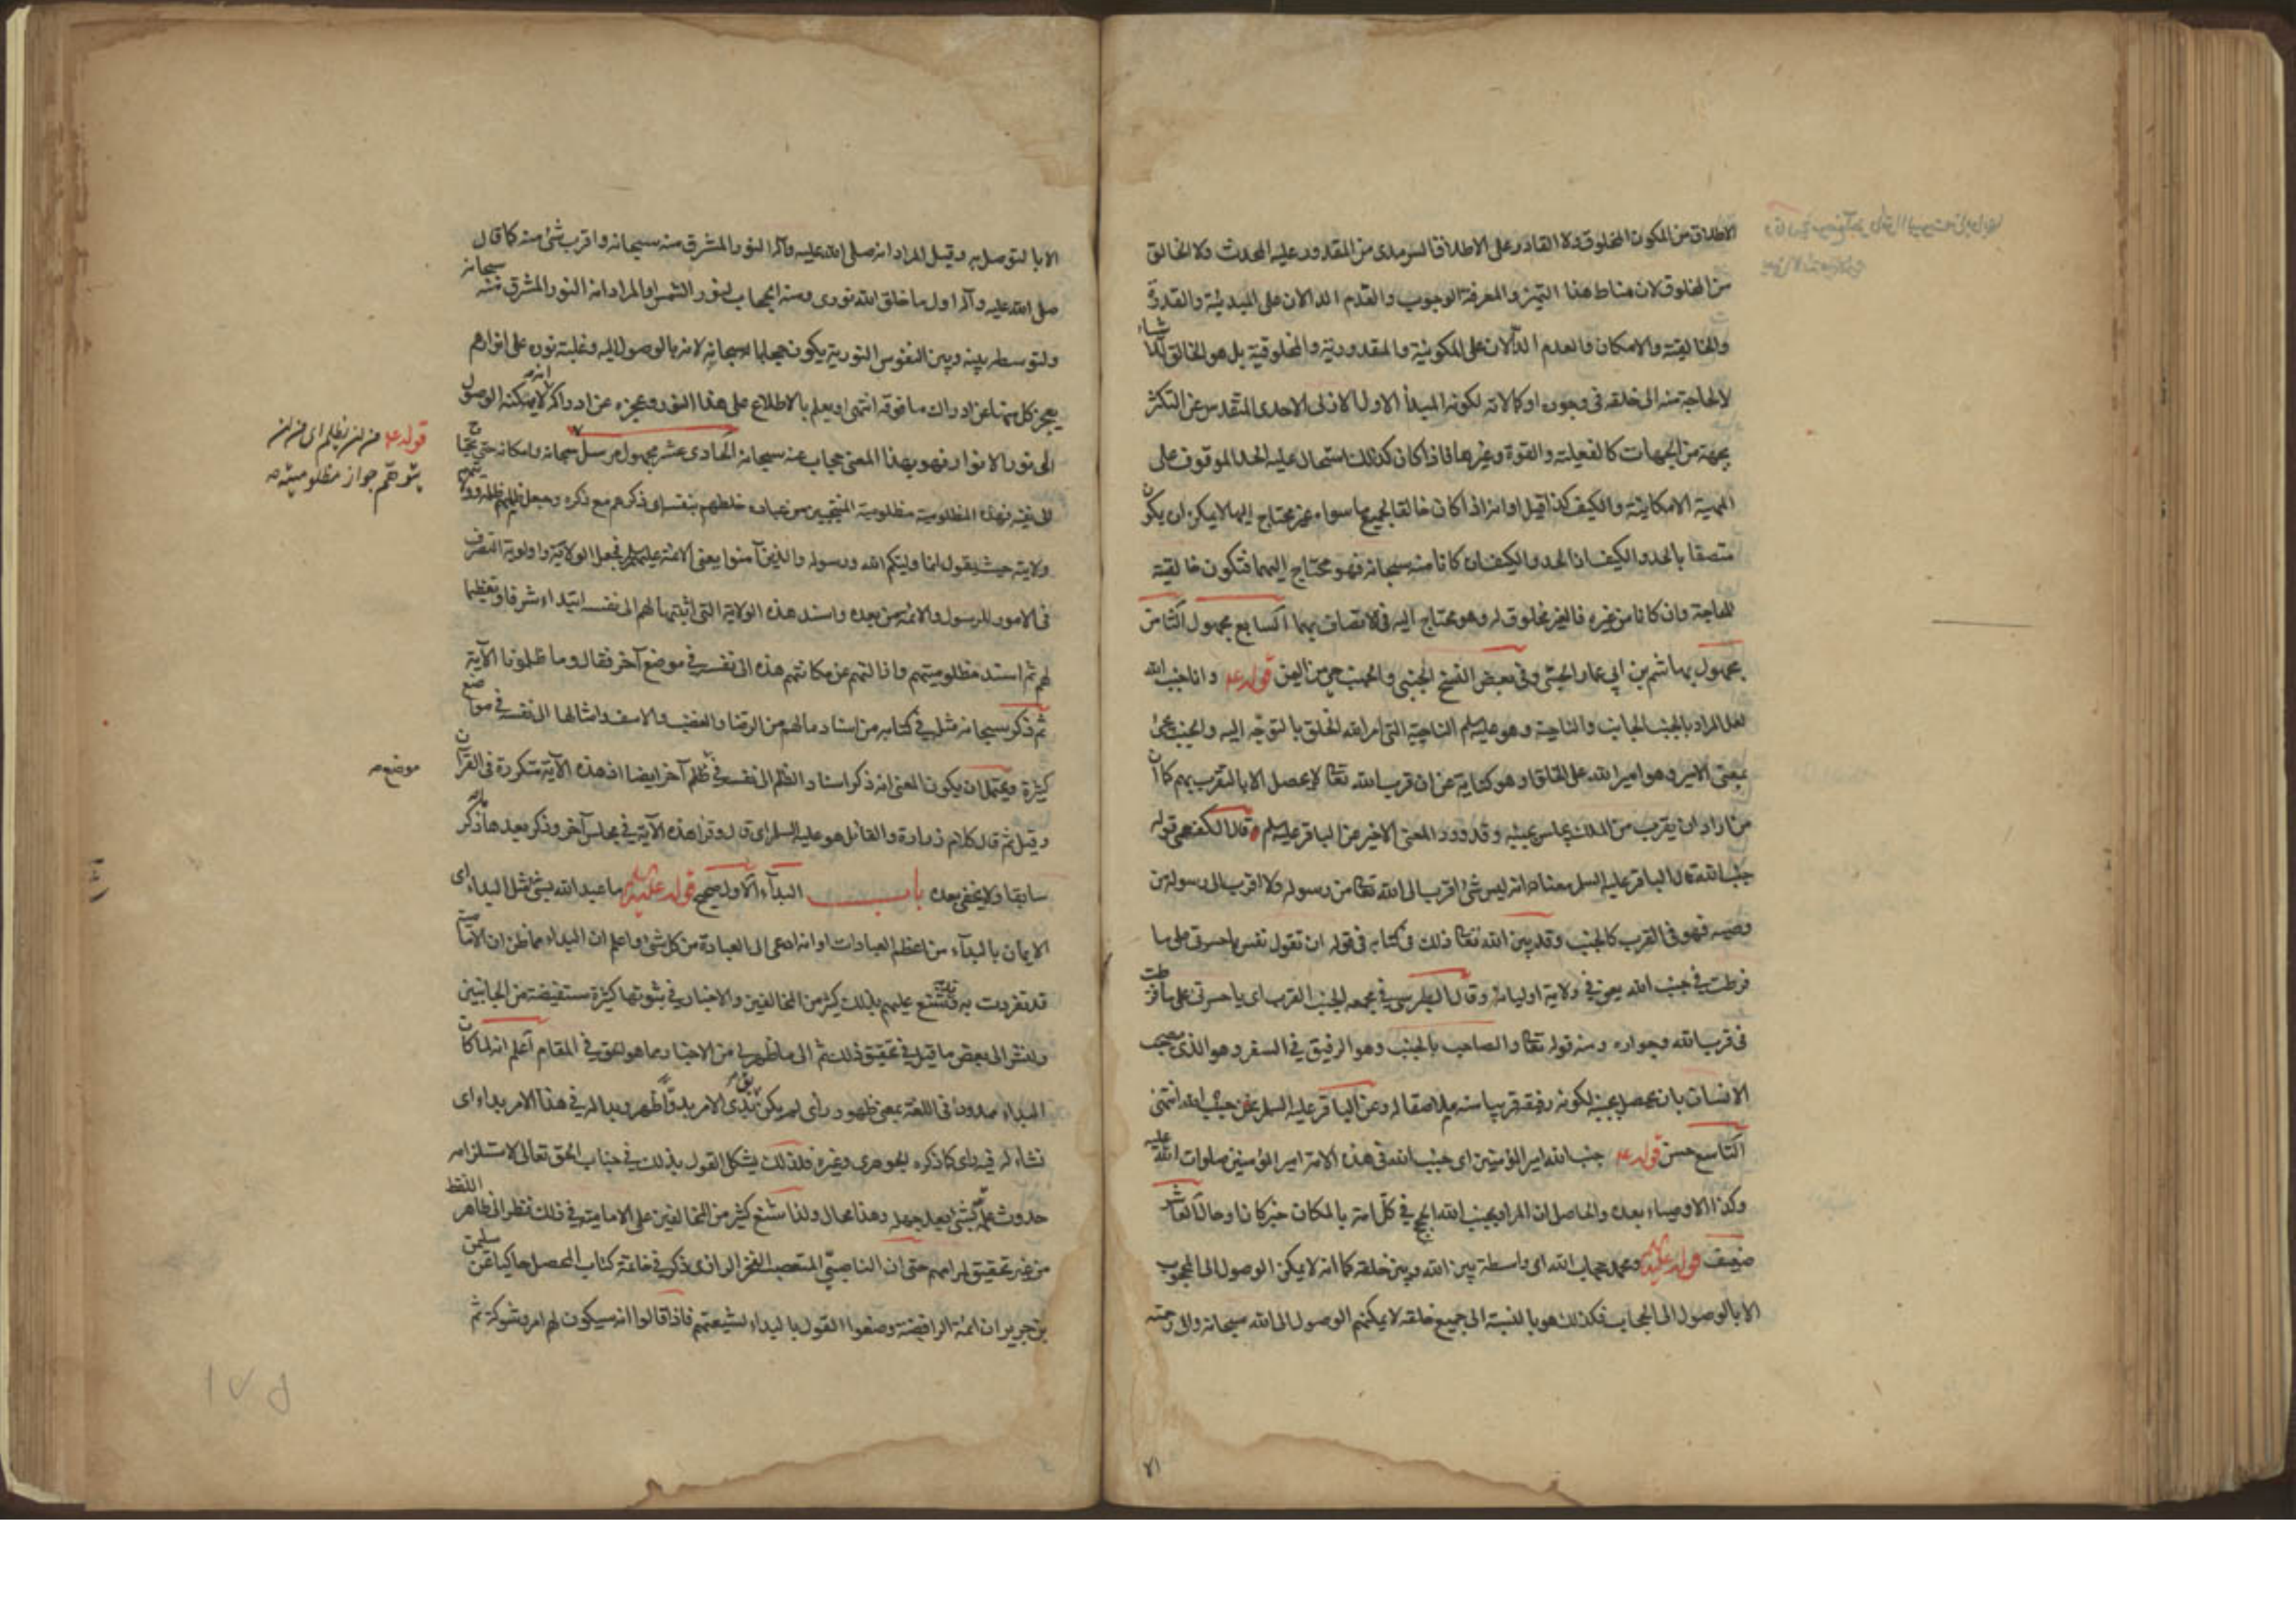 الاطلاق من المكون المخلوق ولا القادر على الاطلاق السرمدى من المقدور عليه المحدث ولا الخالق
من المخلوق لان مناط هذا التميز والمعرفة الوجوب والقدم الدالان على المبدئية والقدرة
والخالقية والامكان والعدم الدالان على المكونية والمقدورية والمخلوقية بل هو الخالق للاشياء
لا لحاجة منه الى خلقه فى وجوده او كمالاته لكونه المبدأ الاول الازلى الاحدى المتقدس عن التكثر
بجهة من الجهات كالفعلية والقوة وغيرها فاذا كان كذلك استحال عليه الحد الموقوف على
المهية الامكانية والكيف كذا قيل او انه اذا كان خالقا لجميع ما سواه غير محتاج اليها لا يمكن ان يكون
متصفا بالحد والكيف اذ الحد والكيف ان كانا منه سبحانه فهو محتاج اليهما فتكون خالقيته
للحاجة وان كانا من غيره فالغير مخلوق له وهو محتاج اليه فى الاتصاف بهما السابع مجهول الثامن
مجهول بهاشم بن ابى عمار الجنبى وفى بعض النسخ الجبنى والجنب حى من اليمن قوله ع وانا جنب الله
لعل المراد بالجنب الجانب والناحية وهو عليه السلم الناحية التى امر الله الخلق بالتوجه اليه والجنب يجئ
بمعنى الامير وهو امير الله على الخلق او هو كناية عن ان قرب الله تعالى لا يحصل الا بالتقرب بهم كما ان
من اراد ان يقرب من الملك يجلس بجنبه وقد ورد المعنى الاخير عن الباقر عليه السلم قال الكفعمى قوله
جنب الله قال الباقر عليه السلم معناه انه ليس شئ اقرب الى الله تعالى من رسوله ولا اقرب الى رسوله من
وصيه فهو فى القرب كالجنب وقد بين الله تعالى ذلك فى كتابه فى قوله ان تقول نفس يا حسرتى على ما
فرطت فى جنب الله يعنى فى ولاية اوليائه وقال الطبرسى فى مجمعه الجنب القرب اى يا حسرتى على ما فرطت
فى قرب الله وجواره ومنه قوله تعالى والصاحب بالجنب وهو الرفيق فى السفر وهو الذى يصحب
الانسان بان يحصل بجنبه لكونه رفيقه قريبا منه ملاصقا له وعن الباقر عليه السلم نحن جنب الله انتهى
التاسع حسن قوله ع جنب الله امير المؤمنين اى جنب الله فى هذه الامة امير المؤمنين صلوات الله عليه
وكذا الاوصياء بعده والحاصل ان المراد بجنب الله الحجج فى كل امة بالمكان حيث كانوا وحالا العاشر
ضعيف قوله عليه السلم ومحمد حجاب الله اى واسطة بين الله وبين خلقه كما انه لا يمكن الوصول الى المحجوب
الا بالوصول الى الحجاب فكذلك هو بالنسبة الى جميع خلقه لا يمكنهم الوصول الى الله سبحانه والى رحمته
الا بالتوصل به وقيل المراد انه صلى الله عليه وآله النور المشرق منه سبحانه واقرب شئ منه كما قال
صلى الله عليه وآله اول ما خلق الله نورى ومنه الحجاب لنور الشمس او المراد انه النور المشرق منه سبحانه
ولتوسطه بينه وبين النفوس النورية يكون حجابا له سبحانه لانه بالوصول اليه وغلبة نوره على انوارهم
يعجز كل منها عن ادراك ما فوقه انتهى او يعلم بالاطلاع على هذا النور وعجزه عن ادراكه انه لا يمكنه الوصول
الى نور الانوار فهو بهذا المعنى حجاب عنه سبحانه الحادى عشر مجهول مرسل
فهذه المظلومية مظلومية المنتجبين من عباده خلطهم بنفسه اى ذكرهم مع ذكره وجعل ظلمهم ظلمه وولايتهم
ولايته حيث يقول انما وليكم الله ورسوله والذين آمنوا يعنى الائمة عليهم السلم فجعل الولاية واولوية التصرف
فى الامور للرسول والائمة من بعده واسند هذه الولاية التى اثبتها لهم الى نفسه ابتداء شرفا وتعظيما
لهم ثم اسند مظلوميتهم واذا لتهم عن مكانتهم هذه الى نفسه فى موضع آخر فقال وما ظلمونا الآية
ثم ذكر سبحانه مثله فى كتابه من اسناد مالهم من الرضا والغضب والاسف وامثالها الى نفسه فى مواضع
كثيرة ويحتمل ان يكون المعنى انه ذكر اسناد الظلم الى نفسه فى ظلم آخر ايضا اذ هذه الآية متكررة فى القرآن
وقيل ثم قال كلام زرارة والقائل هو عليه السلم اى قال وقرأ هذه الآية فى مجلس آخر وذكر بعدها ما ذكر
سابقا ولا يخفى بعده باب البداء الاول صحيح قوله عليه السلم ما عبد الله بشئ مثل البداء اى
الايمان بالبداء من اعظم العبادات او انه ادعى الى العبادة من كل شئ واعلم ان البداء مما ظن ان الامامية
قد تفردت به وقد شنع عليهم بذلك كثير من المخالفين والاخبار فى ثبوتها كثيرة مستفيضة من الجانبين
ولنشر الى بعض ما قيل فى تحقيق ذلك ثم الى ما ظهر لى من الاخبار مما هو الحق فى المقام اعلم انه لما كان
البداء ممدودا فى اللغة بمعنى ظهور رأى لم يكن يق بدى الامر بدوا ظهر وبدا له فى هذا الامر بداء اى
نشاء له فيه راى كما ذكره الجوهرى وغيره فلذلك يشكل القول بذلك فى جناب الحق تعالى لاستلزامه
حدوث علمه بشئ بعد جهله وهذا محال ولذا شنع كثير من المخالفين على الامامية فى ذلك نظرا الى ظاهر اللفظ
من غير تحقيق لمرامهم حتى ان الناصبى المتعصب الفخر الرازى ذكر فى خاتمة كتاب المحصل حاكيا عن سليمن
بن جرير ان ائمة الرافضة وضعوا القول بالبداء لشيعتهم فاذا قالوا انه سيكون لهم امر وشوكة ثم
قوله ع من ان يظلم اى من ان
يتوهم جواز مظلوميته صه
موضع صه
١٧٥